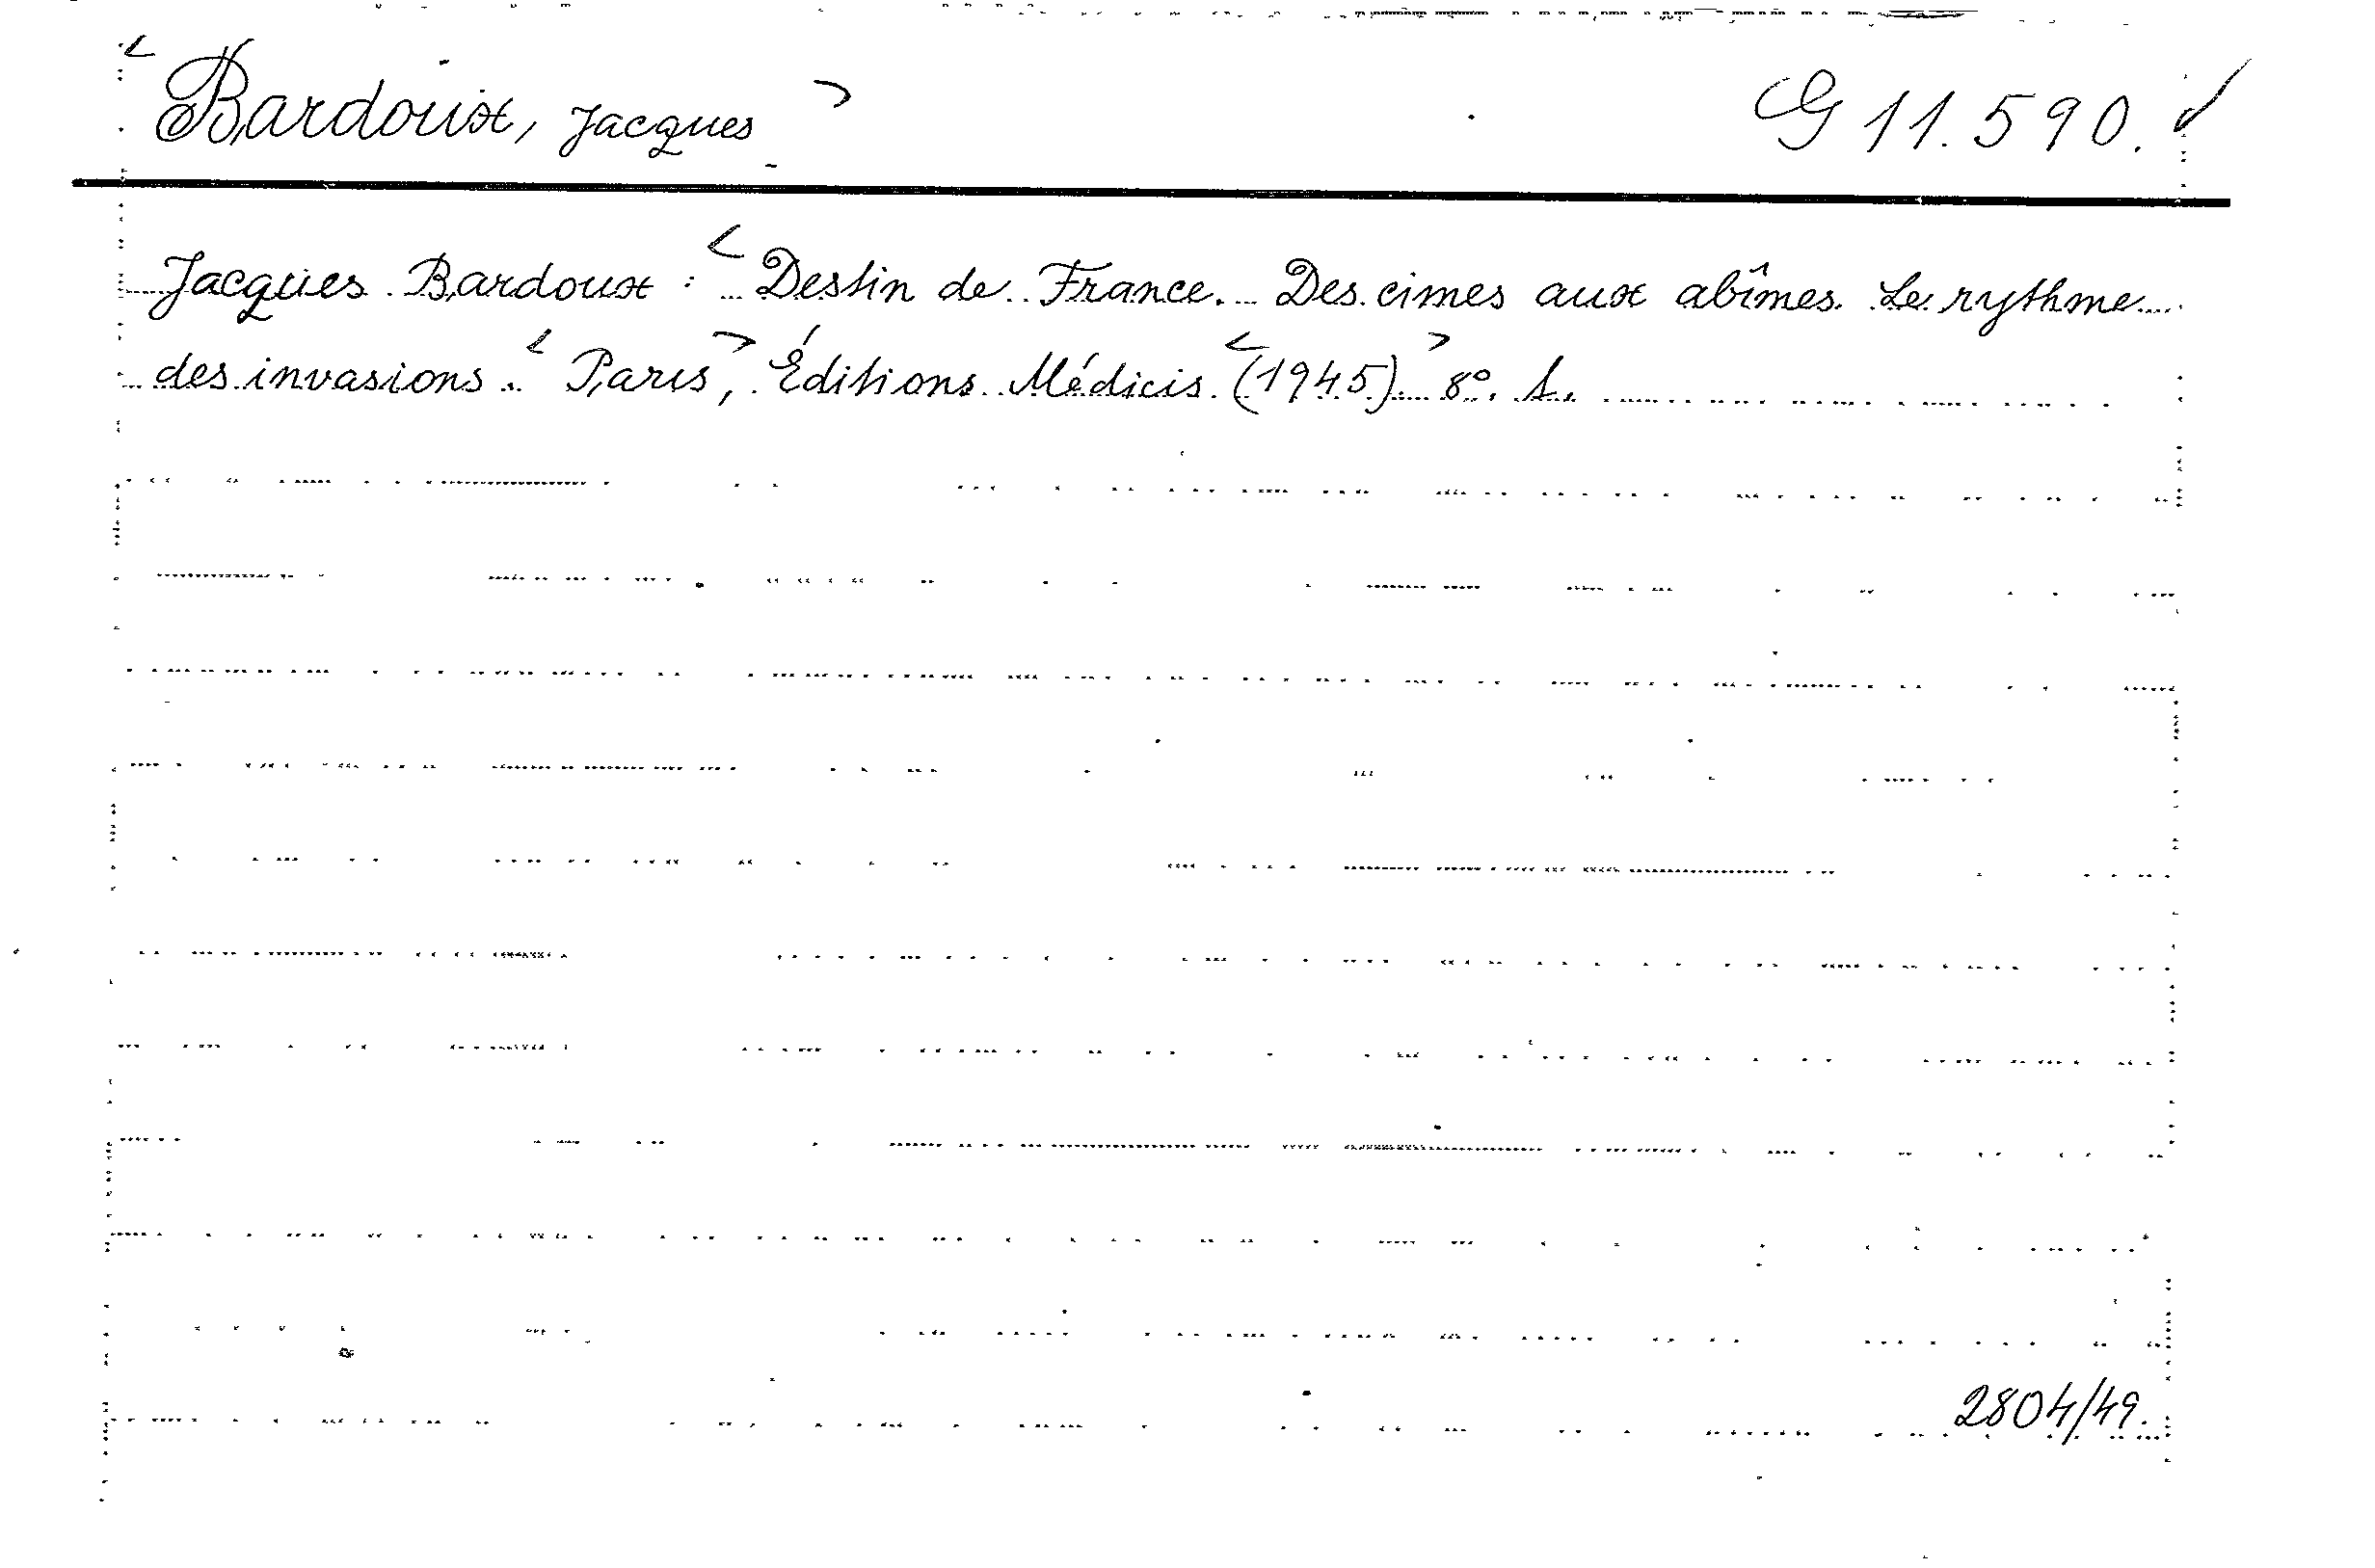 Bardoux, Jacques G 11.590.
Jacques Bardoux : Destin de France. Des cimes aux abîmes. Le rythme
des invasions. Paris, Éditions Médicis (1945). 8°.
2804/49.